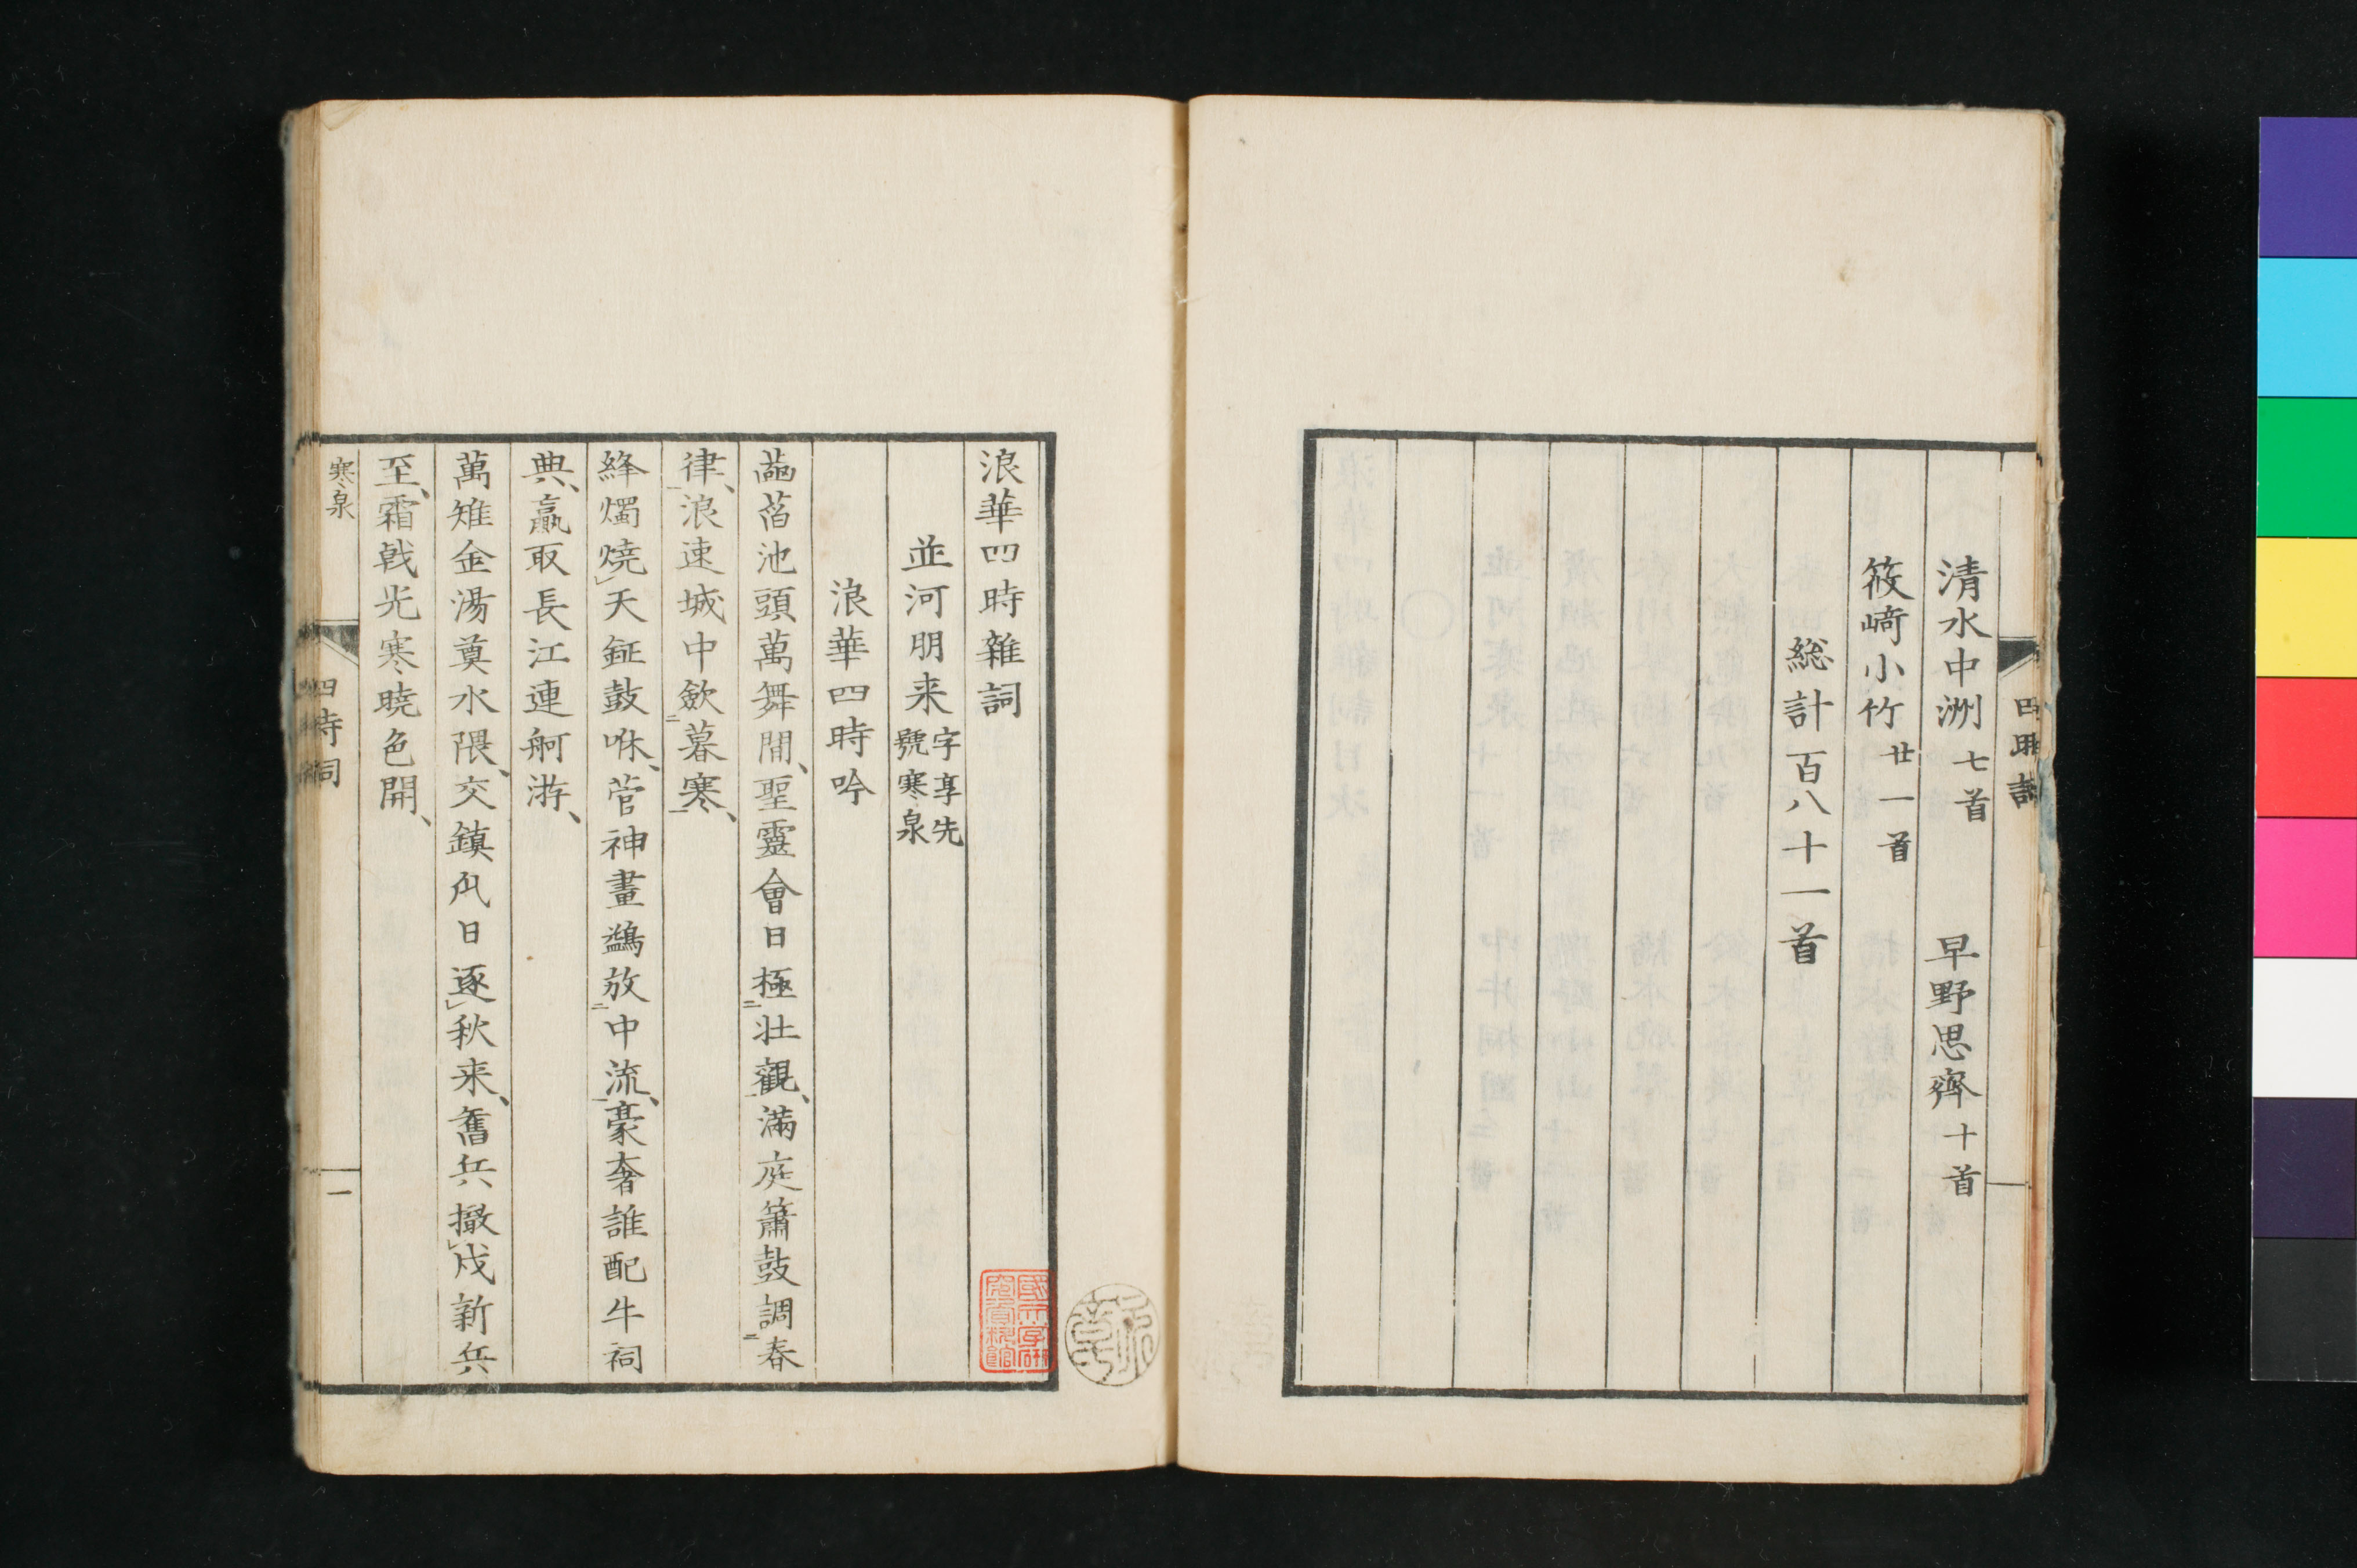 清水中洲 七首 早野思齋 十首
筱﨑小竹 廿一首
総計百八十一首
浪華四時雜詞
並河朋来 字享先 號寒泉
浪華四時吟
菡萏池頭萬舞間、聖靈會日極二壯觀一、滿庭簫鼓調二春
律一、浪速城中歛二暮寒一、
絳燭燒レ天鉦鼓咻、菅神畫鷁放二中流一、豪奢誰配牛祠
典、贏取長江連舸游、
萬雉金湯奠水隈、交鎮夙日逐レ秋来、舊兵撤レ戍新兵
至、霜戟光寒曉色開、
寒泉
四時詞
一